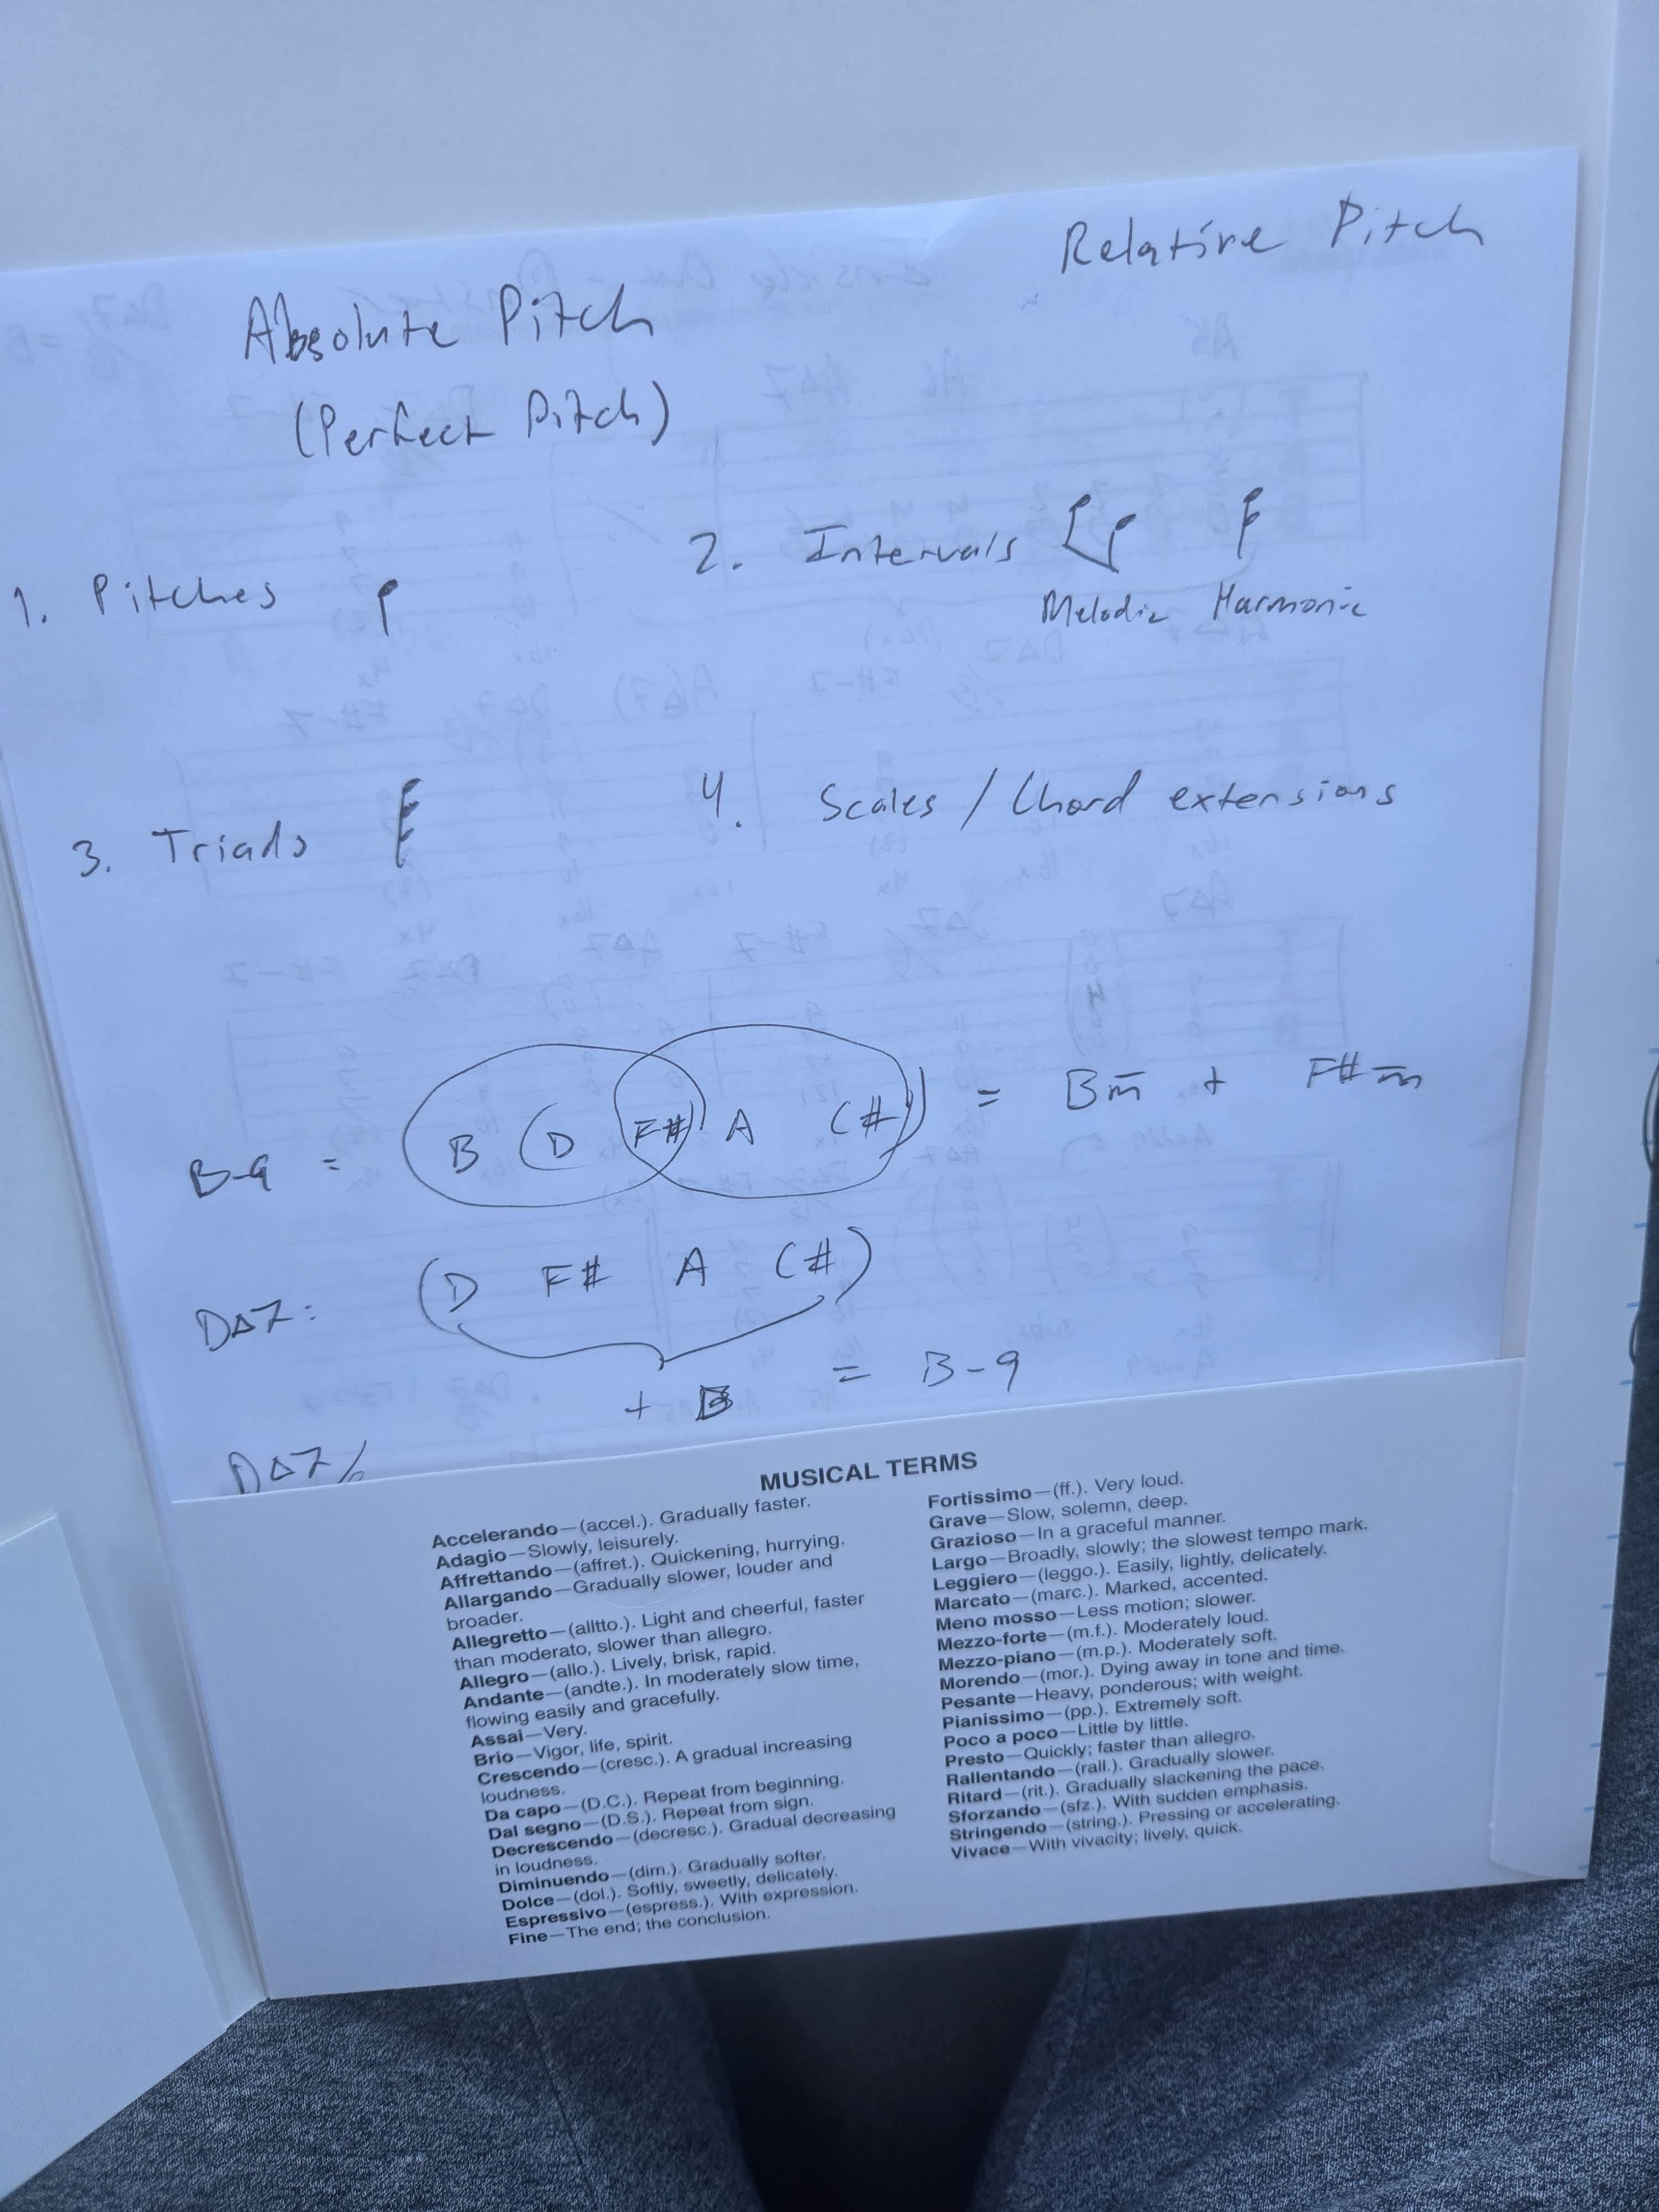 Relative Pitch
Absolute Pitch
(Perfect Pitch)
1. Pitches
2. Intervals
Melodic Harmonic
3. Triads
4. Scales / Chord extensions
B-9 = B (D F# A C#) = Bm + F#m
D△7: (D F# A C#)
+ B = B-9
D△7/
MUSICAL TERMS
Accelerando—(accel.). Gradually faster.
Adagio—Slowly, leisurely.
Affrettando—(affret.). Quickening, hurrying.
Allargando—Gradually slower, louder and
broader.
Allegretto—(alltto.). Light and cheerful, faster
than moderato, slower than allegro.
Allegro—(allo.). Lively, brisk, rapid.
Andante—(andte.). In moderately slow time,
flowing easily and gracefully.
Assai—Very.
Brio—Vigor, life, spirit.
Crescendo—(cresc.). A gradual increasing
loudness.
Da capo—(D.C.). Repeat from beginning.
Dal segno—(D.S.). Repeat from sign.
Decrescendo—(decresc.). Gradual decreasing
in loudness.
Diminuendo—(dim.). Gradually softer.
Dolce—(dol.). Softly, sweetly, delicately.
Espressivo—(espress.). With expression.
Fine—The end; the conclusion.
Fortissimo—(ff.). Very loud.
Grave—Slow, solemn, deep.
Grazioso—In a graceful manner.
Largo—Broadly, slowly; the slowest tempo mark.
Leggiero—(leggo.). Easily, lightly, delicately.
Marcato—(marc.). Marked, accented.
Meno mosso—Less motion; slower.
Mezzo-forte—(m.f.). Moderately loud.
Mezzo-piano—(m.p.). Moderately soft.
Morendo—(mor.). Dying away in tone and time.
Pesante—Heavy, ponderous; with weight.
Pianissimo—(pp.). Extremely soft.
Poco a poco—Little by little.
Presto—Quickly; faster than allegro.
Rallentando—(rall.). Gradually slower.
Ritard—(rit.). Gradually slackening the pace.
Sforzando—(sfz.). With sudden emphasis.
Stringendo—(string.). Pressing or accelerating.
Vivace—With vivacity; lively, quick.